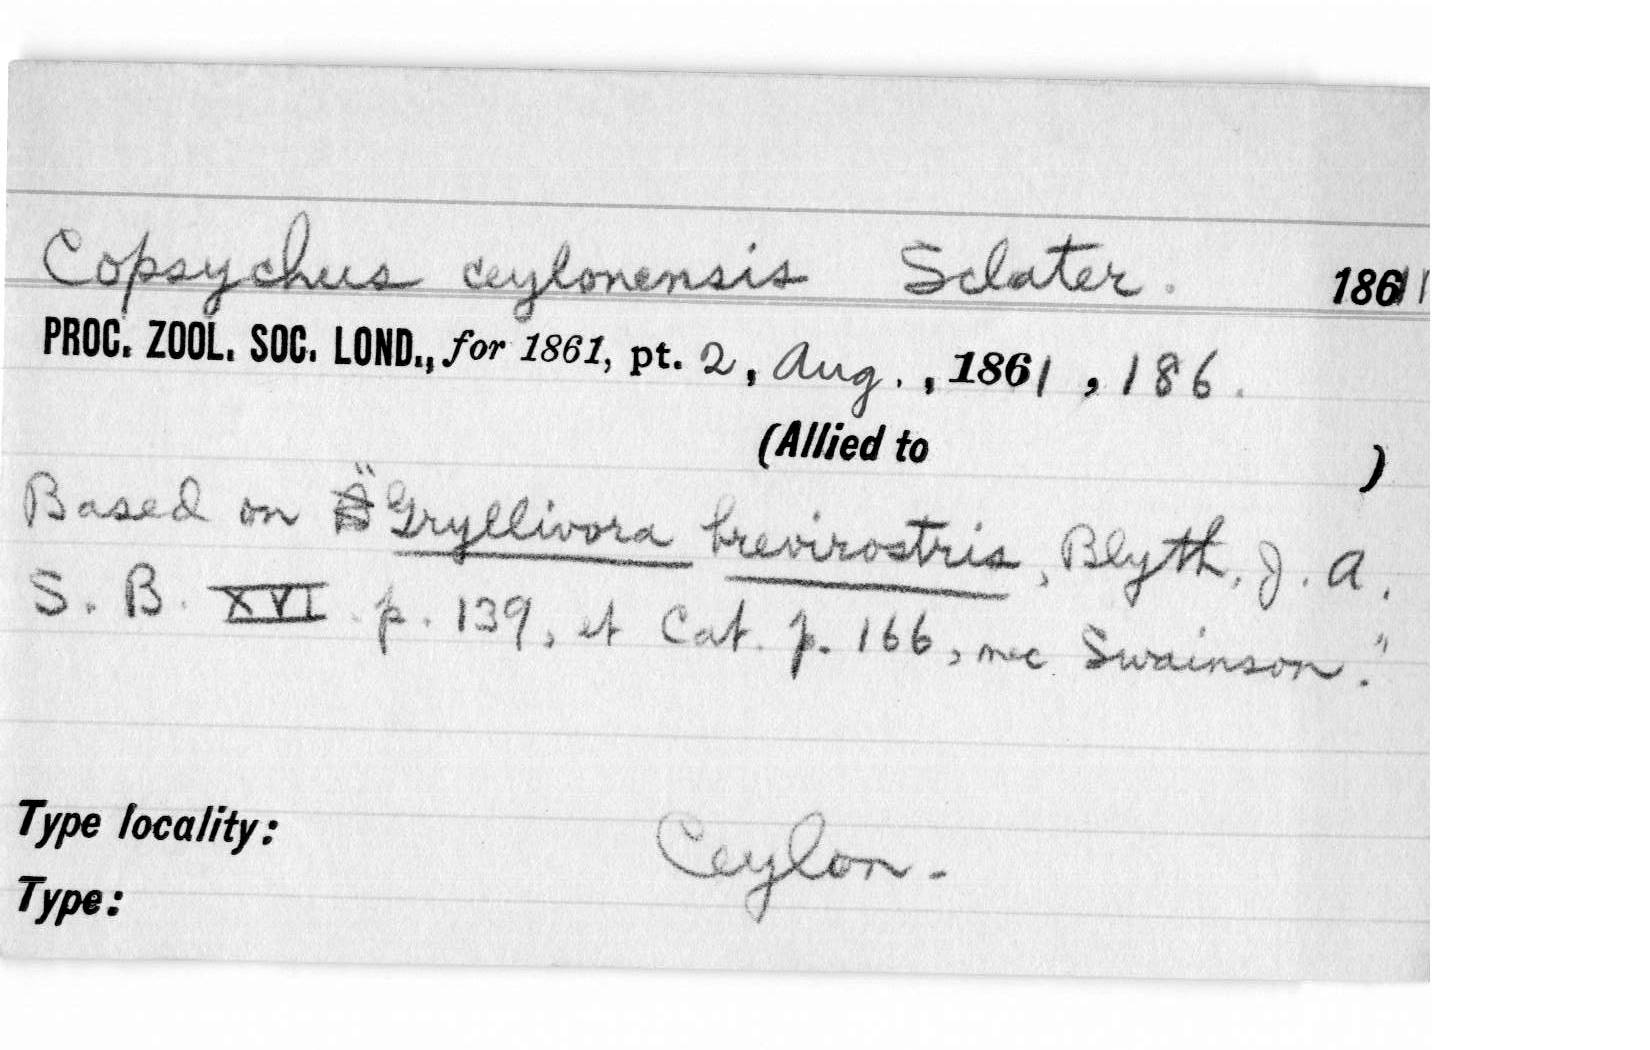 Copsychus ceylonensis Sclater. 1861
PROC. ZOOL. SOC. LOND., for 1861, pt. 2, Aug., 1861, 186.
(Allied to )
Based on "Gryllivora brevirostris, Blyth, J. A.
S. B. XVI. p. 139, et Cat. p. 166, nec Swainson."
Type locality: Ceylon.
Type: